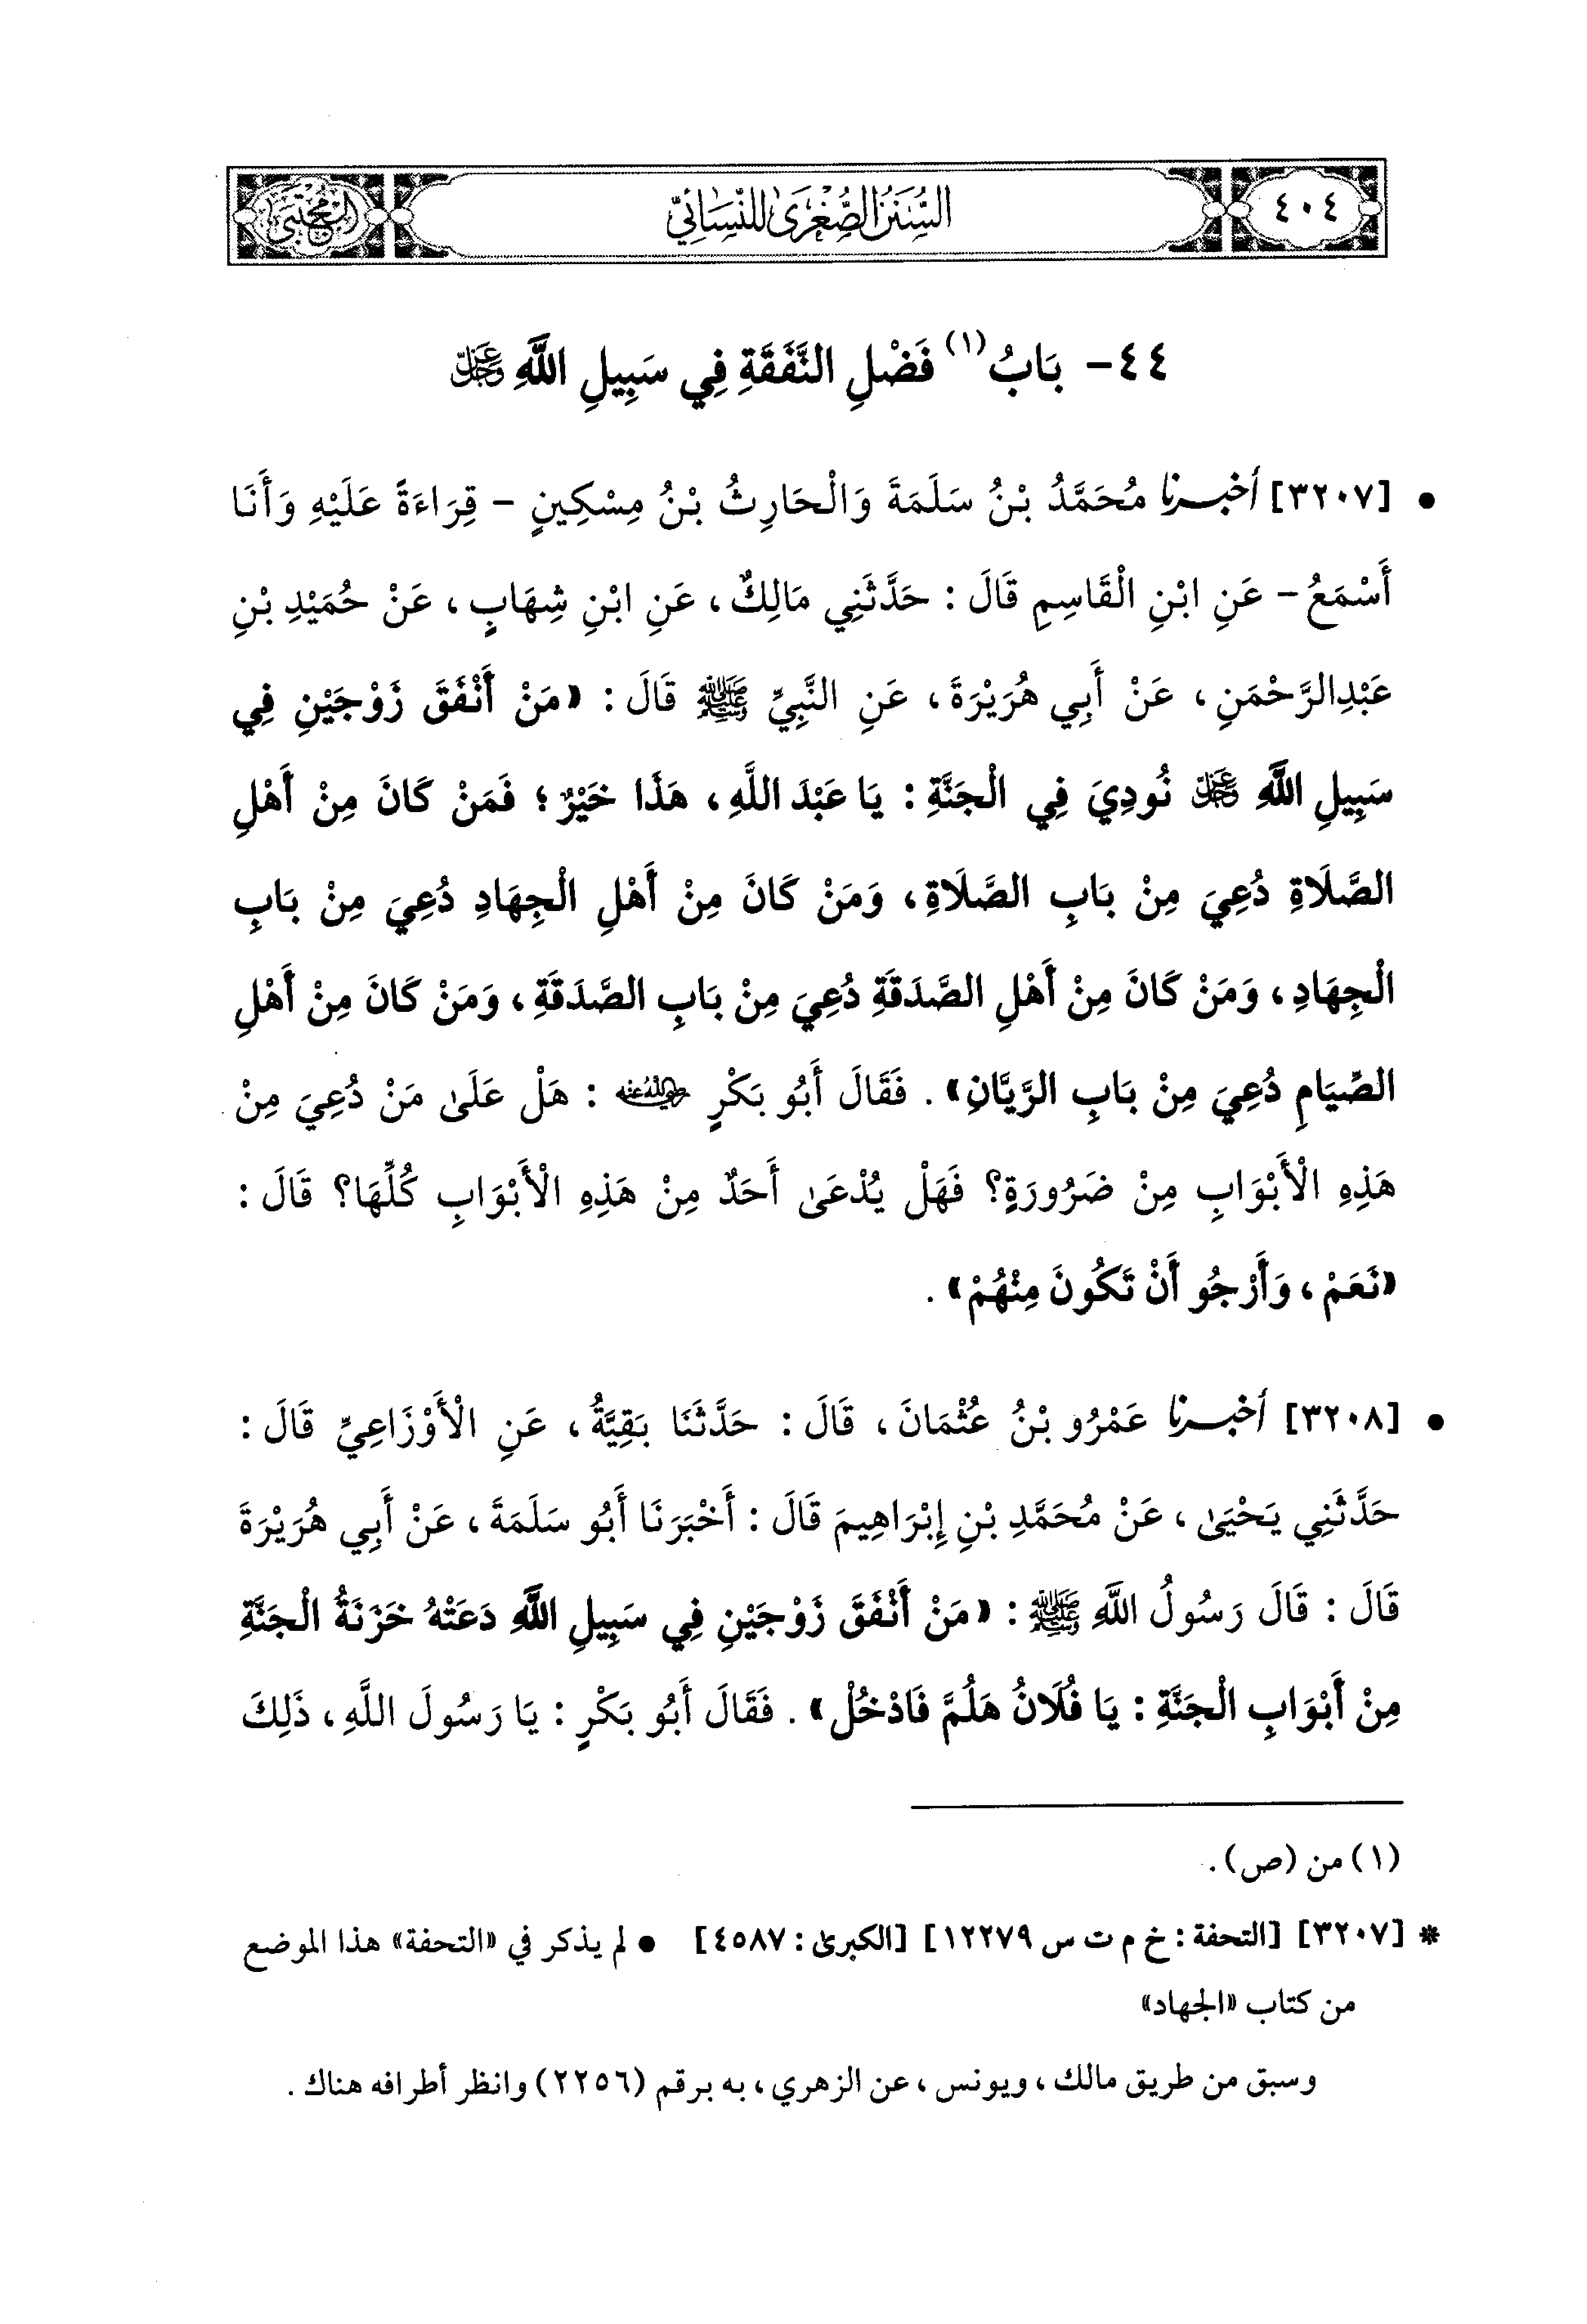 ٤٠٤
السُّنَنُ الصُّغْرَىٰ لِلنَّسَائِيِّ
المجتبى
٤٤- بَابُ(١) فَضْلِ النَّفَقَةِ فِي سَبِيلِ اللَّهِ عَزَّ وَجَلَّ
• [٣٢٠٧] أخبرنا مُحَمَّدُ بْنُ سَلَمَةَ وَالْحَارِثُ بْنُ مِسْكِينٍ - قِرَاءَةً عَلَيْهِ وَأَنَا
أَسْمَعُ - عَنِ ابْنِ الْقَاسِمِ قَالَ : حَدَّثَنِي مَالِكٌ، عَنِ ابْنِ شِهَابٍ، عَنْ حُمَيْدِ بْنِ
عَبْدِالرَّحْمَنِ، عَنْ أَبِي هُرَيْرَةَ، عَنِ النَّبِيِّ ﷺ قَالَ : «مَنْ أَنْفَقَ زَوْجَيْنِ فِي
سَبِيلِ اللَّهِ عَزَّ وَجَلَّ نُودِيَ فِي الْجَنَّةِ : يَا عَبْدَ اللَّهِ، هَذَا خَيْرٌ؛ فَمَنْ كَانَ مِنْ أَهْلِ
الصَّلَاةِ دُعِيَ مِنْ بَابِ الصَّلَاةِ، وَمَنْ كَانَ مِنْ أَهْلِ الْجِهَادِ دُعِيَ مِنْ بَابِ
الْجِهَادِ، وَمَنْ كَانَ مِنْ أَهْلِ الصَّدَقَةِ دُعِيَ مِنْ بَابِ الصَّدَقَةِ، وَمَنْ كَانَ مِنْ أَهْلِ
الصِّيَامِ دُعِيَ مِنْ بَابِ الرَّيَّانِ». فَقَالَ أَبُو بَكْرٍ رضي الله عنه : هَلْ عَلَىٰ مَنْ دُعِيَ مِنْ
هَذِهِ الْأَبْوَابِ مِنْ ضَرُورَةٍ؟ فَهَلْ يُدْعَىٰ أَحَدٌ مِنْ هَذِهِ الْأَبْوَابِ كُلِّهَا؟ قَالَ :
«نَعَمْ، وَأَرْجُو أَنْ تَكُونَ مِنْهُمْ».
• [٣٢٠٨] أخبرنا عَمْرُو بْنُ عُثْمَانَ، قَالَ : حَدَّثَنَا بَقِيَّةُ، عَنِ الْأَوْزَاعِيِّ قَالَ :
حَدَّثَنِي يَحْيَىٰ، عَنْ مُحَمَّدِ بْنِ إِبْرَاهِيمَ قَالَ : أَخْبَرَنَا أَبُو سَلَمَةَ، عَنْ أَبِي هُرَيْرَةَ
قَالَ : قَالَ رَسُولُ اللَّهِ ﷺ : «مَنْ أَنْفَقَ زَوْجَيْنِ فِي سَبِيلِ اللَّهِ دَعَتْهُ خَزَنَةُ الْجَنَّةِ
مِنْ أَبْوَابِ الْجَنَّةِ : يَا فُلَانُ هَلُمَّ فَادْخُلْ». فَقَالَ أَبُو بَكْرٍ : يَا رَسُولَ اللَّهِ، ذَلِكَ
(١) من (ص).
* [٣٢٠٧] [التحفة : خ م ت س ١٢٢٧٩] [الكبرىٰ : ٤٥٨٧] • لم يذكر في «التحفة» هذا الموضع
من كتاب «الجهاد»
وسبق من طريق مالك، ويونس، عن الزهري، به برقم (٢٢٥٦) وانظر أطرافه هناك.